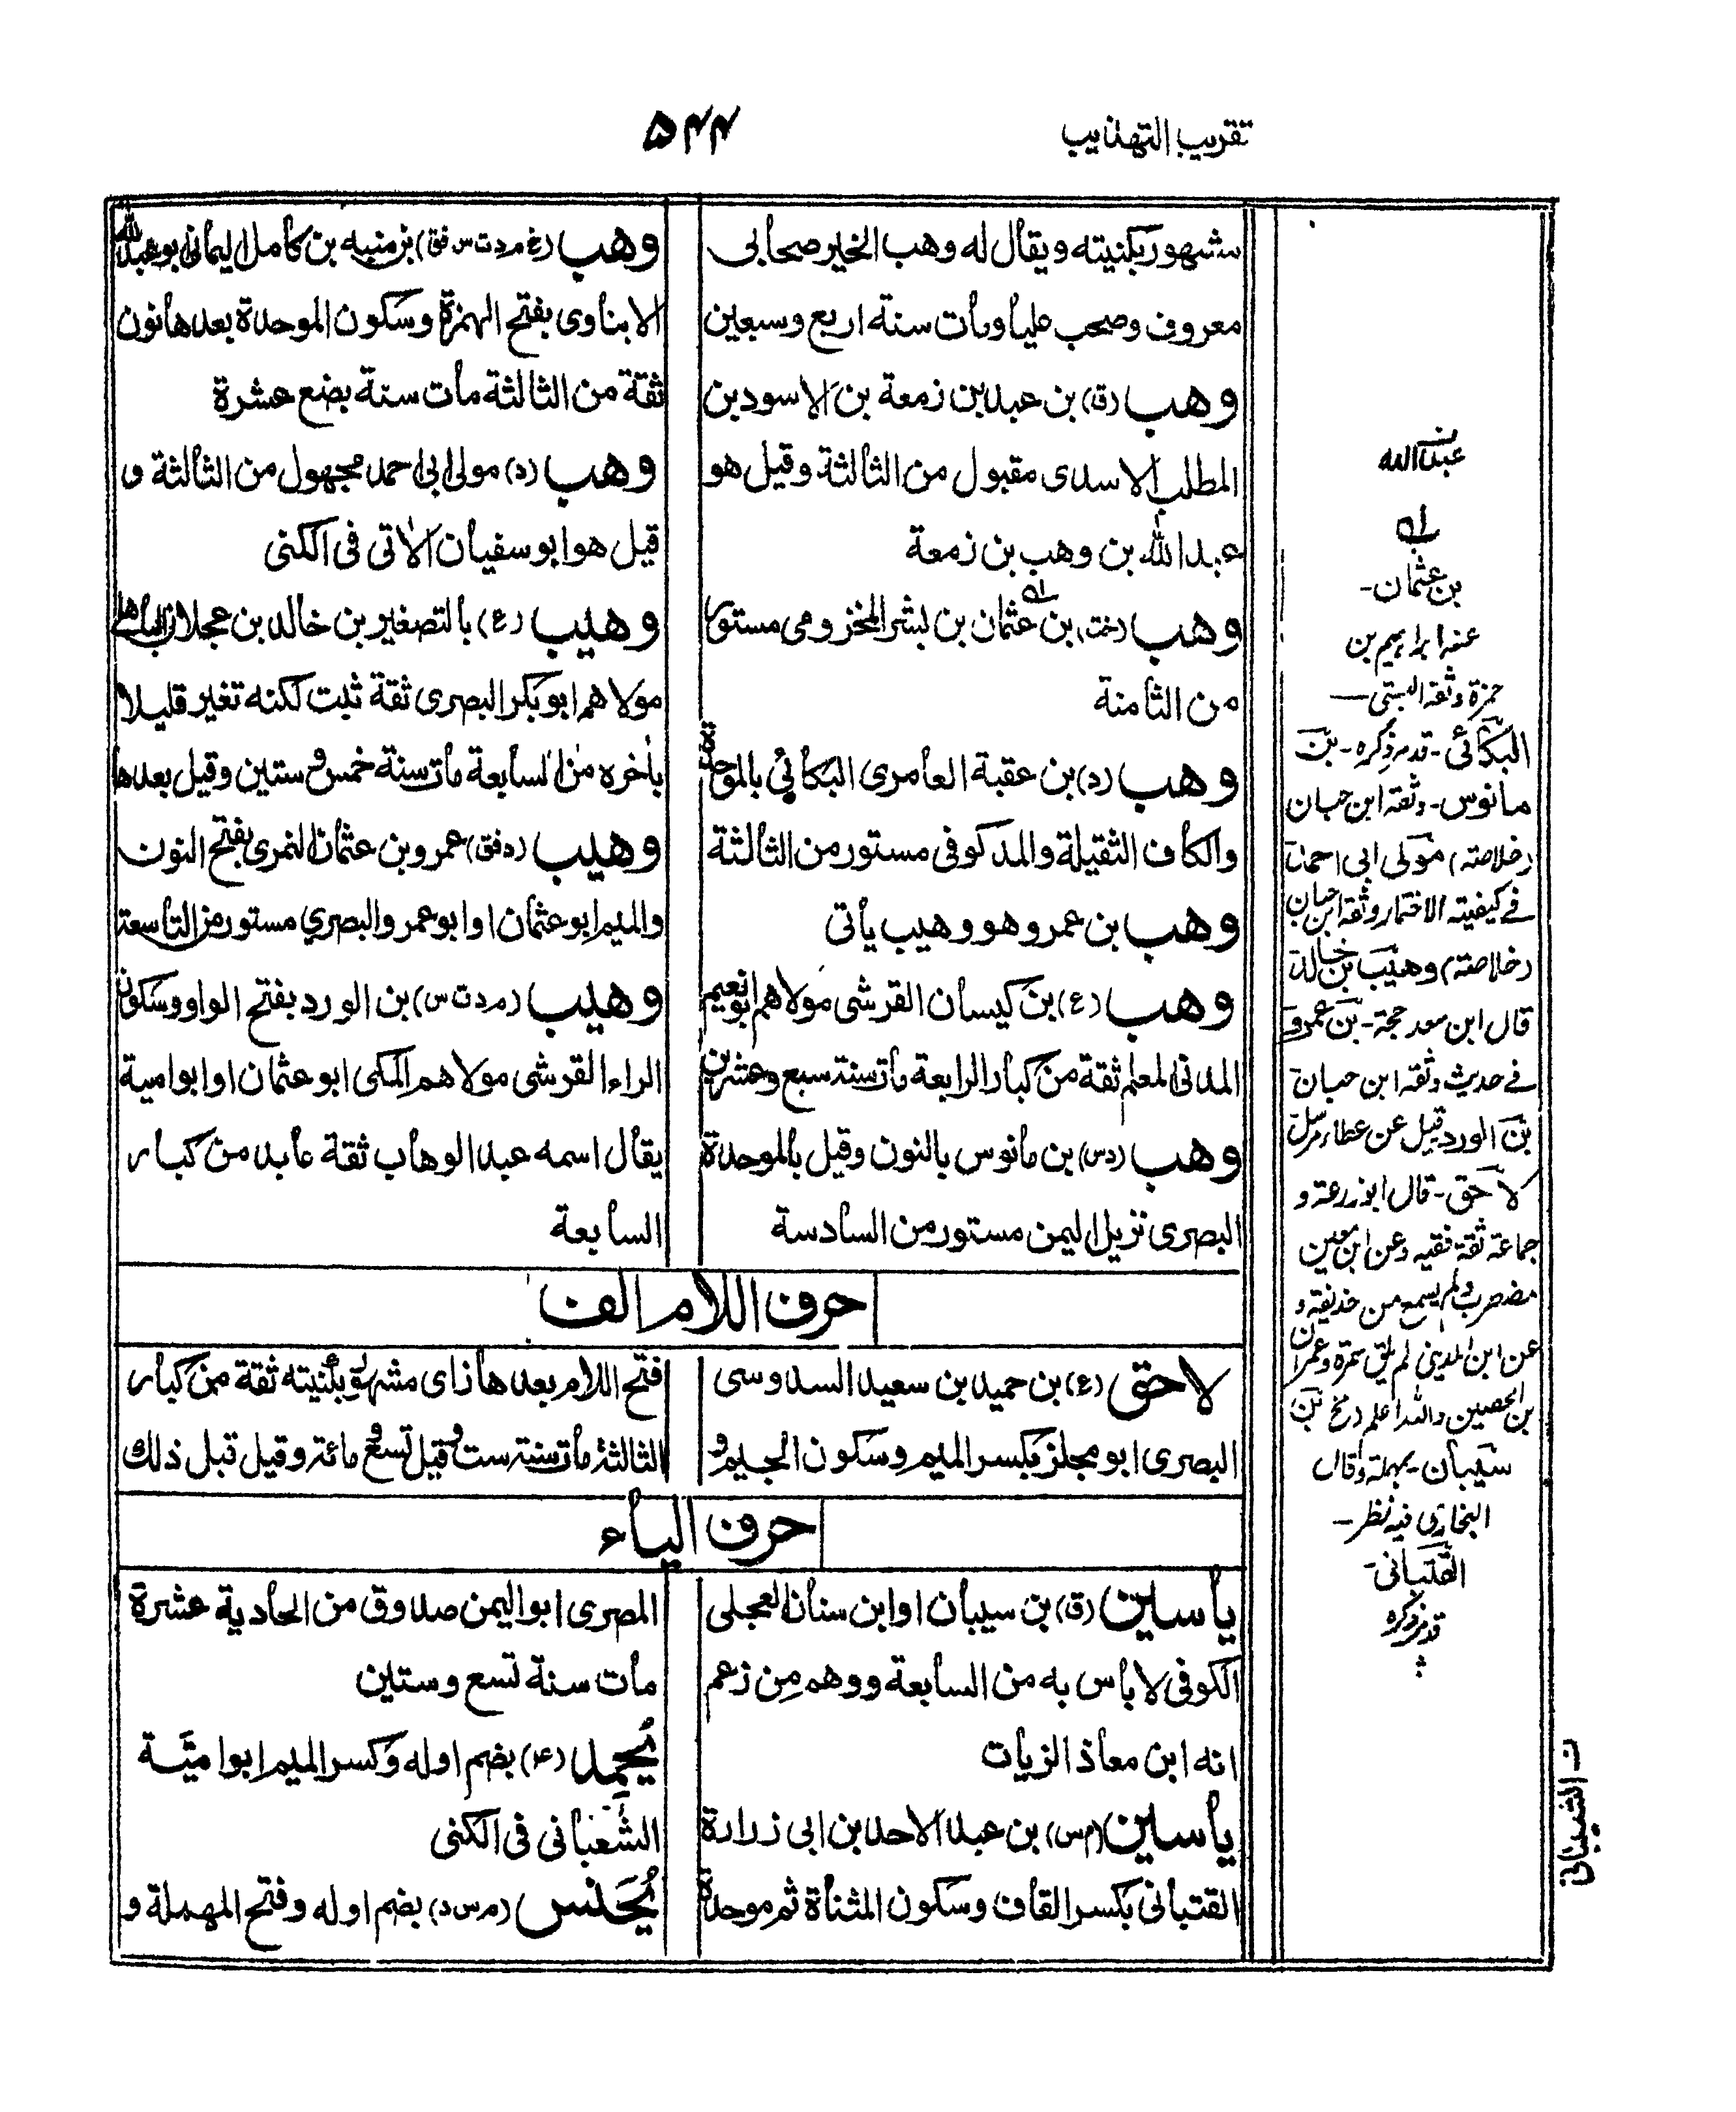 تقريب التهذيب
۵۴۴
مشهور بكنيته ويقال له وهب الخير صحابى
معروف وصحب عليا ومات سنة اربع وسبعين
وهب (ق) بن عبد بن زمعة بن الاسود بن
المطلب الاسدى مقبول من الثالثة وقيل هو
عبد الله بن وهب بن زمعة
وهب (خت) بن عثمان بن بشر المخزومى مستور
من الثامنة
وهب (د) بن عقبة العامرى البكائى بالموحدة
والكاف الثقيلة والمد كوفى مستور من الثالثة
وهب بن عمرو هو وهيب يأتى
وهب (ع) بن كيسان القرشى مولاهم ابو نعيم
المدنى المعلم ثقة من كبار الرابعة مات سنة سبع وعشرين
وهب (دس) بن مانوس بالنون وقيل بالموحدة
البصرى نزيل اليمن مستور من السادسة
وهب (خ م د ت س فق) بن منبه بن كامل اليمانى ابو عبد الله
الابناوى بفتح الهمزة وسكون الموحدة بعدها نون
ثقة من الثالثة مات سنة بضع عشرة
وهب (د) مولى ابى احمد مجهول من الثالثة و
قيل هو ابو سفيان الاتى فى الكنى
وهيب (ع) بالتصغير بن خالد بن عجلان الباهلى
مولاهم ابو بكر البصرى ثقة ثبت لكنه تغير قليلا
باخره من السابعة مات سنة خمس وستين وقيل بعدها
وهيب (د فق) عمرو بن عثمان النمرى بفتح النون
والميم ابو عثمان او ابو عمرو البصري مستور من التاسعة
وهيب (م د ت س) بن الورد بفتح الواو وسكون
الراء القرشى مولاهم المكى ابو عثمان او ابو امية
يقال اسمه عبد الوهاب ثقة عابد من كبار
السابعة
حرف اللام الف
لاحق (ع) بن حميد بن سعيد السدوسى
البصرى ابو مجلز بكسر الميم وسكون الجيم و
فتح اللام بعدها زاى مشهور بكنيته ثقة من كبار
الثالثة مات سنة ست وقيل تسع ومائة وقيل قبل ذلك
حرف الياء
ياسين (ق) بن سيبان او ابن سنان العجلى
الكوفى لا باس به من السابعة ووهم من زعم
انه ابن معاذ الزيات
ياسين (م س) بن عبد الاحد بن ابى زرارة
القتبانى بكسر القاف وسكون المثناة ثم موحدة
المصرى ابو اليمن صدوق من الحادية عشرة
مات سنة تسع وستين
يُحمِد (۴) بضم اوله وكسر الميم ابو امية
الشعبانى فى الكنى
يُحَنس (م س د) بضم اوله وفتح المهملة و
عبد الله
بن عثمان -
عنه ابراهيم بن
حمزة وثقه البستى —
البكائى - قد مر ذكره - بن
مانوس - وثقه ابن حبان
(خلاصته) مولى ابى احمد
فى كيفيته الاختمار وثقه ابن حبان
(خلاصته) وهيب بن خالد
قال ابن سعد حجة - بن عمرو
فى حديث وثقه ابن حبان
بن الورد قيل عن عطاء مرسل
لاحق - قال ابو زرعة و
جماعة ثقة فقيه وعن ابن معين
مضطرب ولم يسمع من حذيفة و
عن ابن المدينى لم يلق سمرة وعمران
بن الحصين والله اعلم بن
سيبان - بمهملة وقال
البخارى فيه نظر —
القتبانى -
قد مر ذكره
ن - الشيبانى